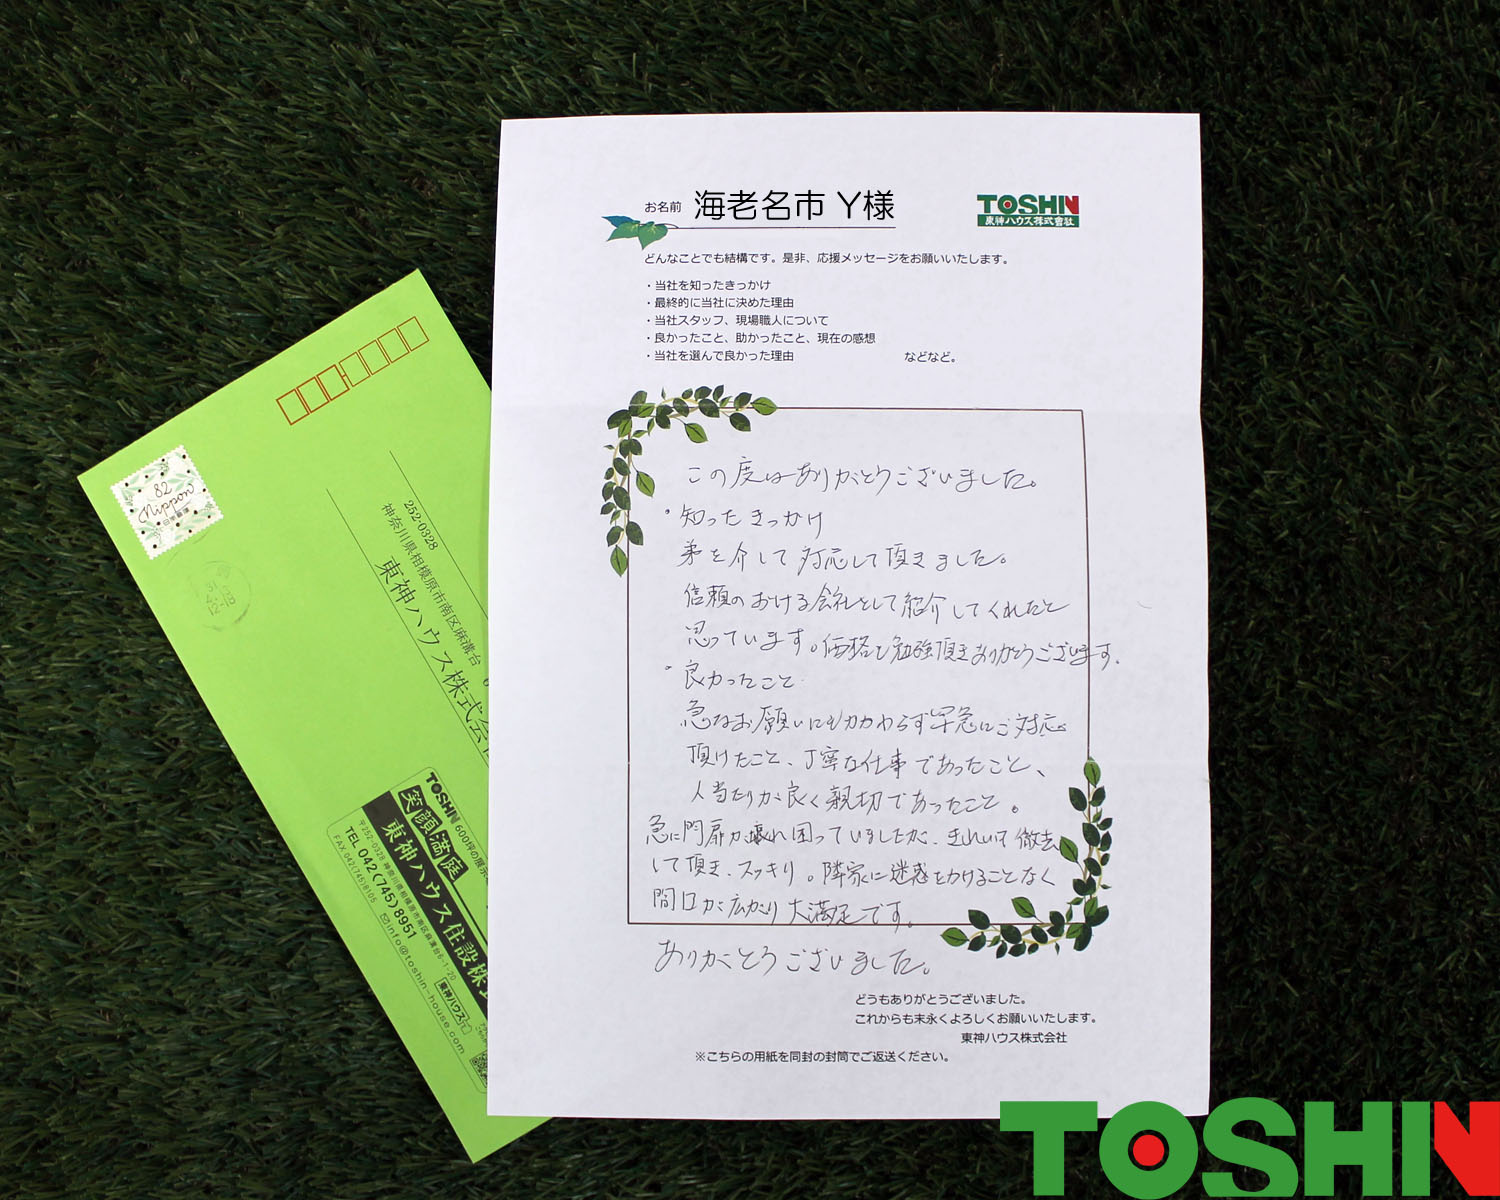 お名前 海老名市 Y様
TOSHIN
東神ハウス株式會社
どんなことでも結構です。是非、応援メッセージをお願いいたします。
・当社を知ったきっかけ
・最終的に当社に決めた理由
・当社スタッフ、現場職人について
・良かったこと、助かったこと、現在の感想
・当社を選んで良かった理由 などなど。
この度はありがとうございました。
・知ったきっかけ
弟を介して対応して頂きました。
信頼のおける会社として紹介してくれたと
思っています。価格も勉強頂きありがとうございます。
・良かったこと
急なお願いにもかかわらず早急にご対応
頂けたこと、丁寧な仕事であったこと、
人当たりが良く親切であったこと。
急に門扉が壊れ困っていましたが、きれいに撤去
して頂き、スッキリ。隣家に迷惑をかけることなく
間口が広がり大満足です。
ありがとうございました。
どうもありがとうございました。
これからも末永くよろしくお願いいたします。
東神ハウス株式会社
※こちらの用紙を同封の封筒でご返送ください。
82
Nippon
日本郵便
252-0328
神奈川県相模原市南区麻溝台
東神ハウス株式会社
TOSHIN 600坪の展示
笑顔満庭
東神ハウス住設株
〒252-0328 神奈川県相模原市南区麻溝台6-1-20
TEL 042(745)8951
FAX 042(745)8105
info@toshin-house.com
東神ハウス
TOSHIN